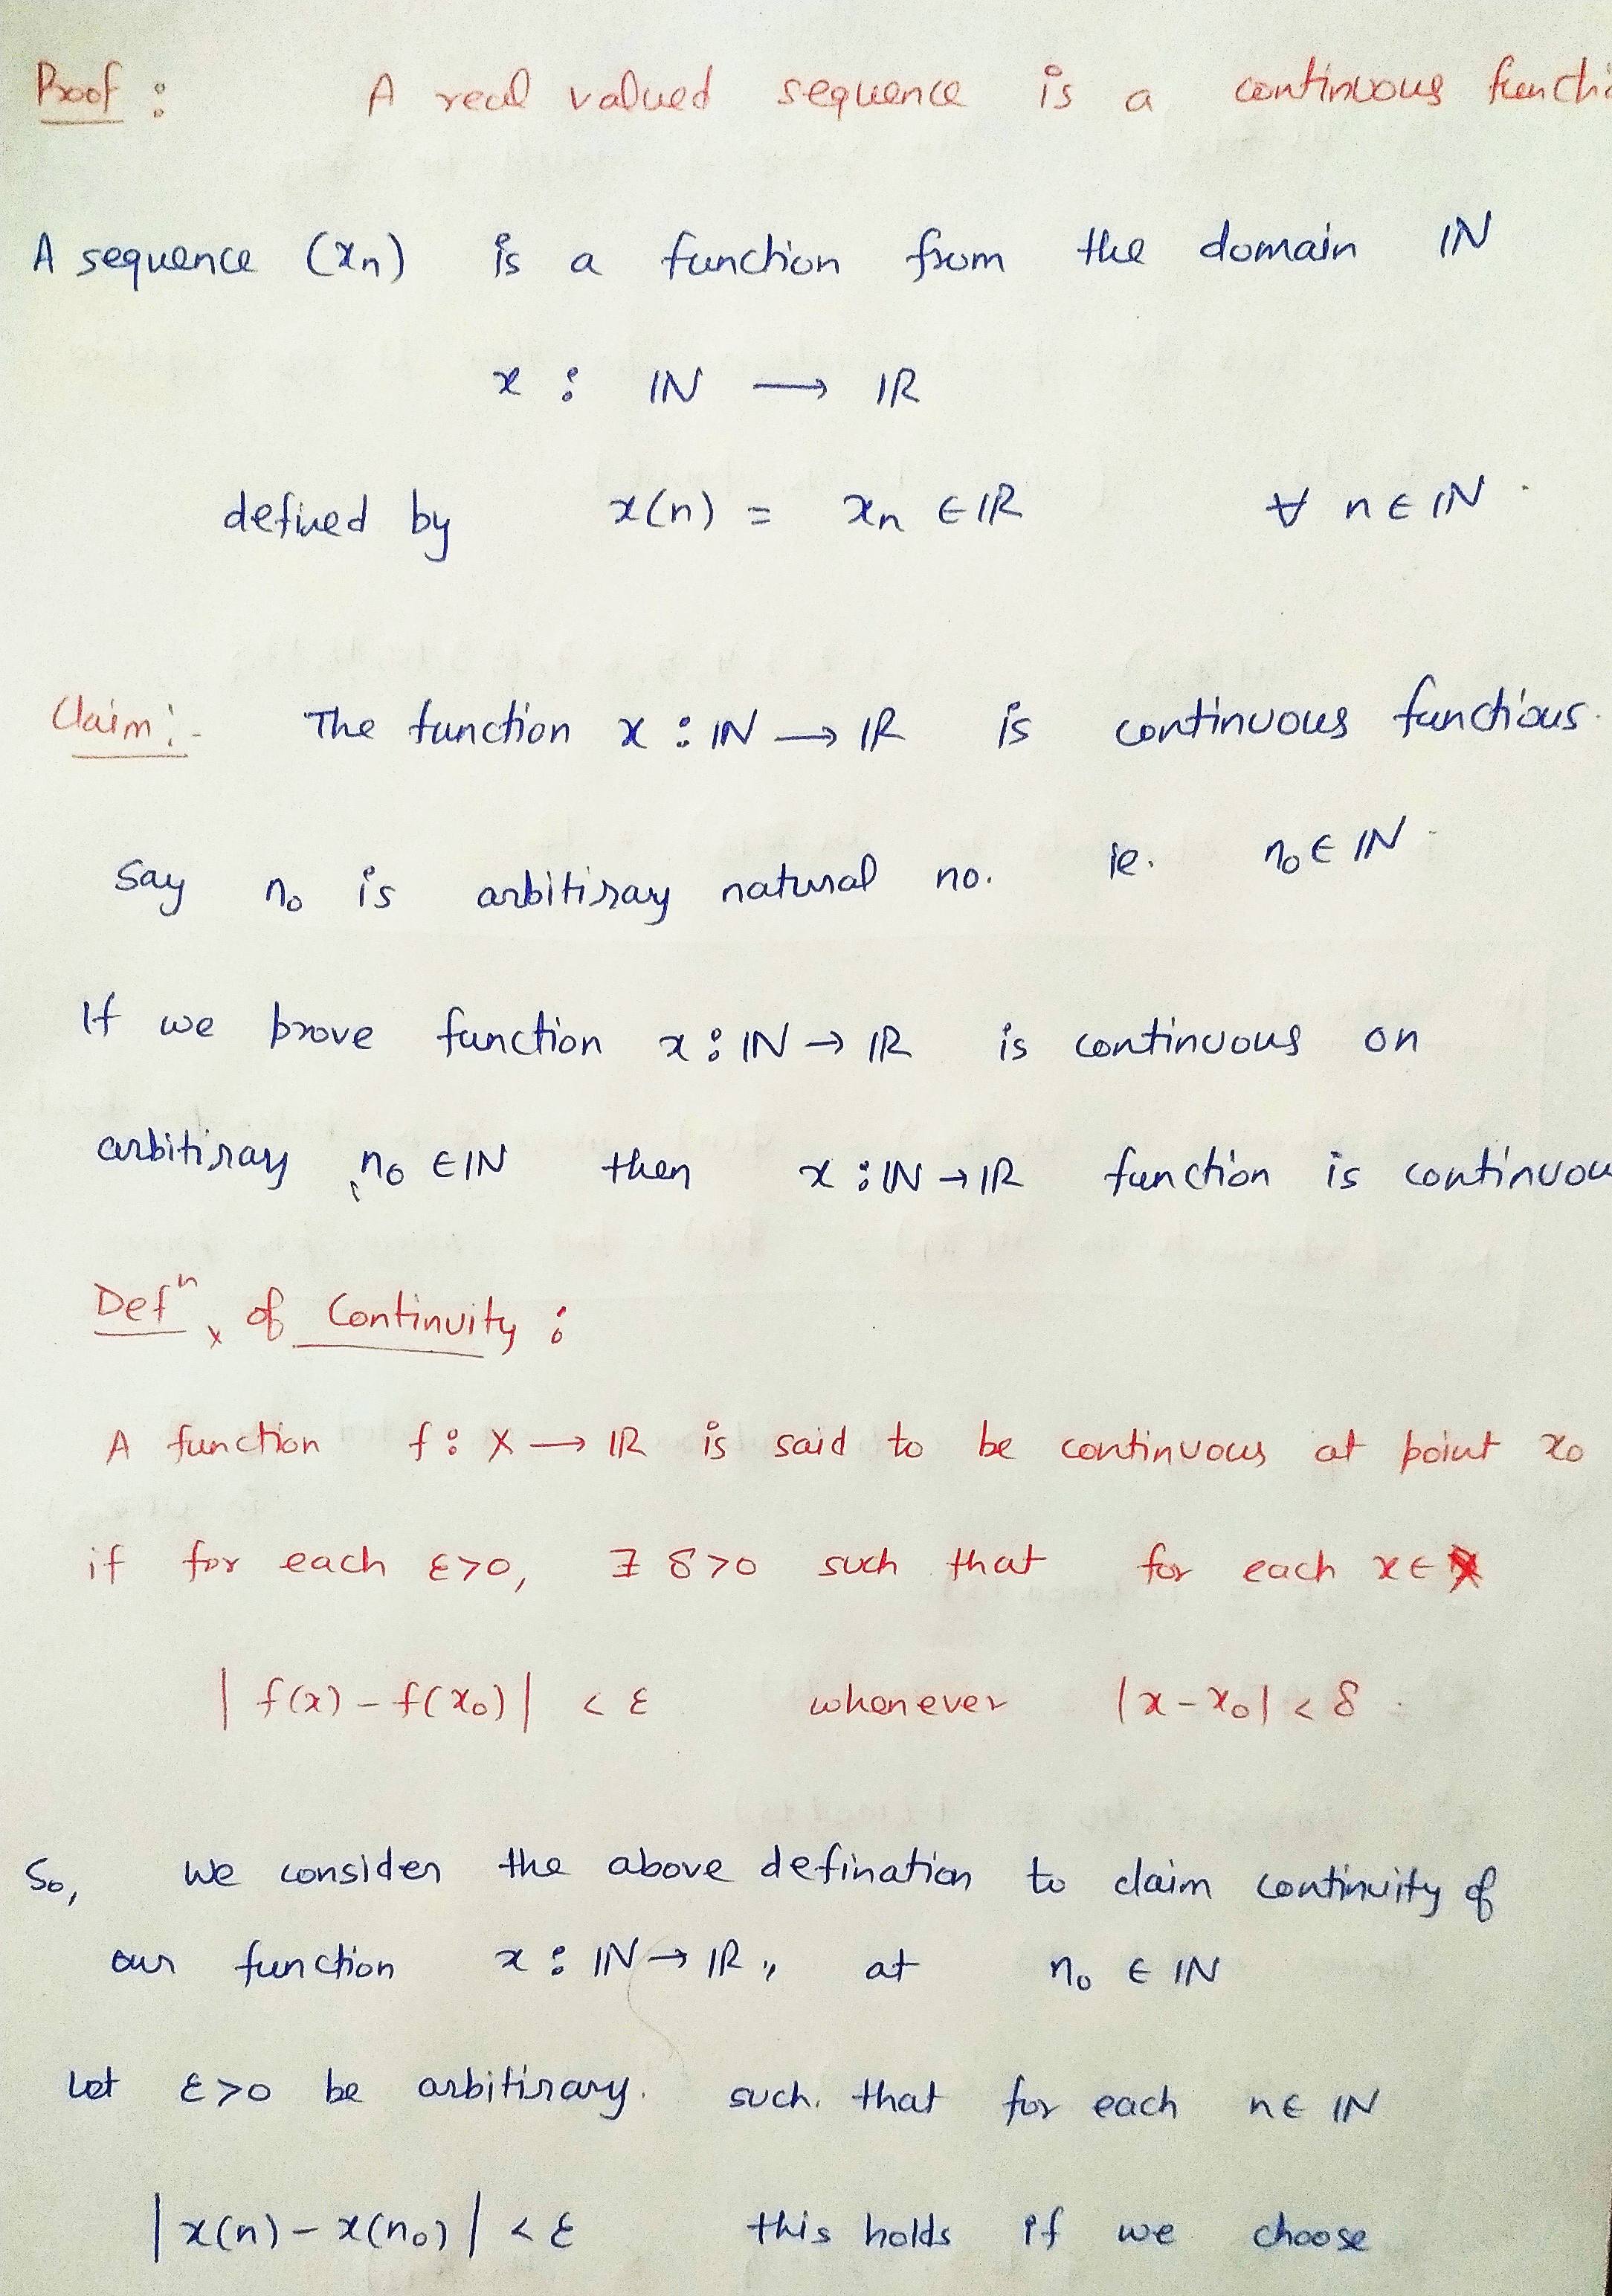 Proof : A real valued sequence is a continuous functi
A sequence (xₙ) is a function from the domain ℕ
x : ℕ ⟶ ℝ
defined by x(n) = xₙ ∈ ℝ ∀ n ∈ ℕ.
Claim:- The function x : ℕ ⟶ ℝ is continuous functions.
Say n₀ is arbitiray natural no. ie. n₀ ∈ ℕ
If we prove function x : ℕ → ℝ is continuous on
arbitiray n₀ ∈ ℕ then x : ℕ → ℝ function is continuou
Defⁿ of Continuity :
A function f : X ⟶ ℝ is said to be continuous at point x₀
if for each ε>0, ∃ δ>0 such that for each x ∈ X
| f(x) - f(x₀) | < ε whenever |x - x₀| < δ
So, we consider the above defination to claim continuity of
our function x : ℕ → ℝ, at n₀ ∈ ℕ
Let ε>0 be arbitirary. such that for each n ∈ ℕ
| x(n) - x(n₀) | < ε this holds if we choose